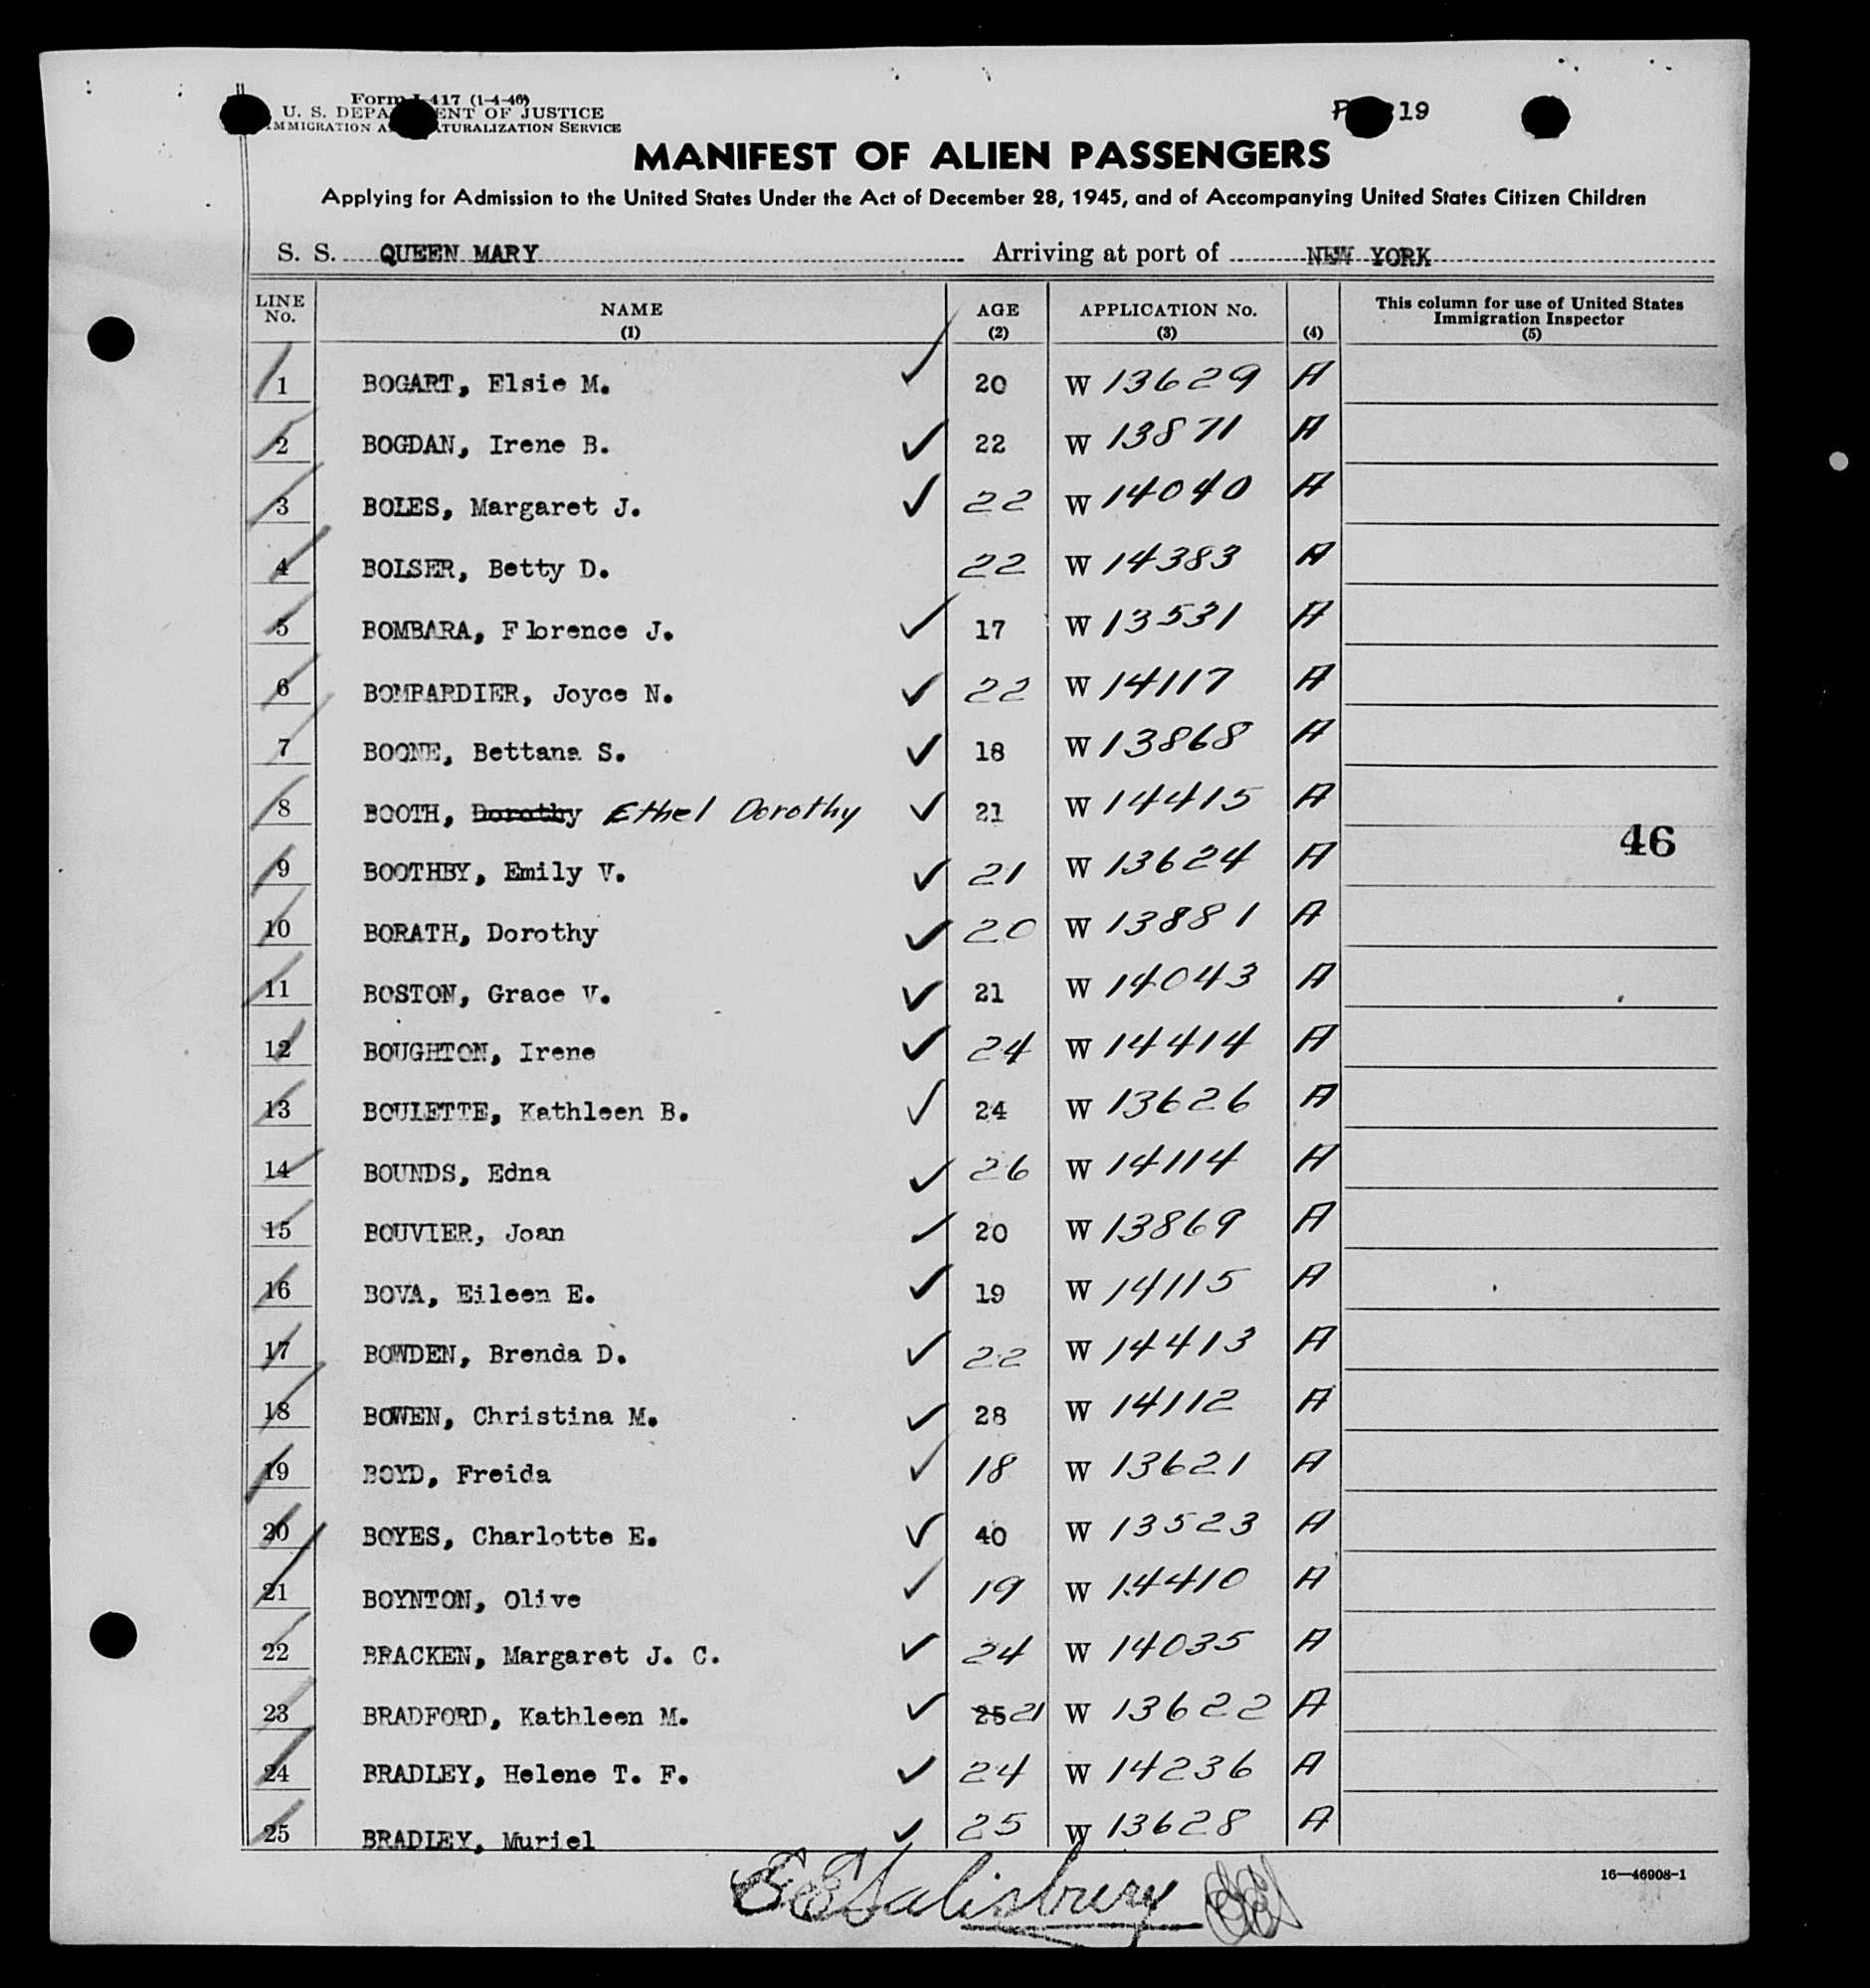 Form I-417 (1-4-46)
U. S. DEPARTMENT OF JUSTICE
IMMIGRATION AND NATURALIZATION SERVICE
19
MANIFEST OF ALIEN PASSENGERS
Applying for Admission to the United States Under the Act of December 28, 1945, and of Accompanying United States Citizen Children
S. S. QUEEN MARY Arriving at port of NEW YORK
LINE No. NAME (1) AGE (2) APPLICATION No. (3) (4) This column for use of United States Immigration Inspector (5)
1 BOGART, Elsie M. ✓ 20 W 13629 A
2 BOGDAN, Irene B. ✓ 22 W 13871 A
3 BOLES, Margaret J. ✓ 22 W 14040 A
4 BOLSER, Betty D. 22 W 14383 A
5 BOMBARA, Florence J. ✓ 17 W 13531 A
6 BOMPARDIER, Joyce N. ✓ 22 W 14117 A
7 BOONE, Bettana S. ✓ 18 W 13868 A
8 BOOTH, Dorothy Ethel Dorothy ✓ 21 W 14415 A
46
9 BOOTHBY, Emily V. ✓ 21 W 13624 A
10 BORATH, Dorothy ✓ 20 W 13881 A
11 BOSTON, Grace V. ✓ 21 W 14043 A
12 BOUGHTON, Irene ✓ 24 W 14414 A
13 BOULETTE, Kathleen B. ✓ 24 W 13626 A
14 BOUNDS, Edna ✓ 26 W 14114 A
15 BOUVIER, Joan ✓ 20 W 13869 A
16 BOVA, Eileen E. ✓ 19 W 14115 A
17 BOWDEN, Brenda D. ✓ 22 W 14413 A
18 BOWEN, Christina M. ✓ 28 W 14112 A
19 BOYD, Freida ✓ 18 W 13621 A
20 BOYES, Charlotte E. ✓ 40 W 13523 A
21 BOYNTON, Olive ✓ 19 W 14410 A
22 BRACKEN, Margaret J. C. ✓ 24 W 14035 A
23 BRADFORD, Kathleen M. ✓ 25 21 W 13622 A
24 BRADLEY, Helene T. F. ✓ 24 W 14236 A
25 BRADLEY, Muriel ✓ 25 W 13628 A
E E Salisbury
16—46908-1